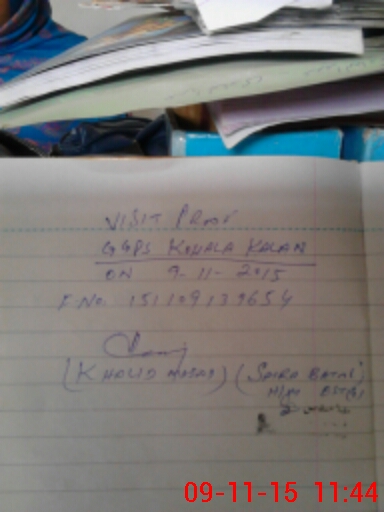 VISIT PROOF
GGPS KOHALA KALAN
ON 9-11-2015
F.No. 151109139654
(KHALID) (SAIRA BATAI)
09-11-15 11:44